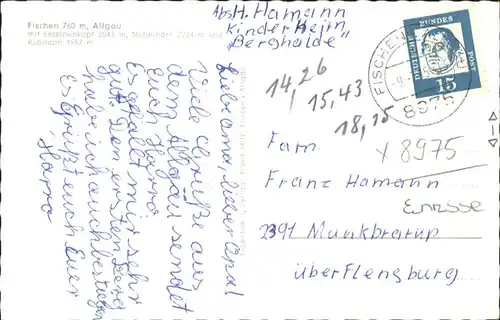 Fischen 760 m, Allgäu
mit Entschenkopf 2043 m, Nebelhorn 2224 m und
Rubihorn 1957 m
Abs. H. Hamann
Kinderheim
Berghalde
Liebe Oma, lieber Opa!
Viele Grüße aus
dem Allgäu sendet
Euch Harro
Es gefällt mir sehr
gut. Den ersten Berg
habe ich auch bestiegen
Es grüßt euch Euer
Harro
DEUTSCHE BUNDESPOST
15
FISCHEN
8975
14,26
15,43
18,15
x 8975
Fam.
Franz Hamann
2391 Munkbrarup
über Flensburg